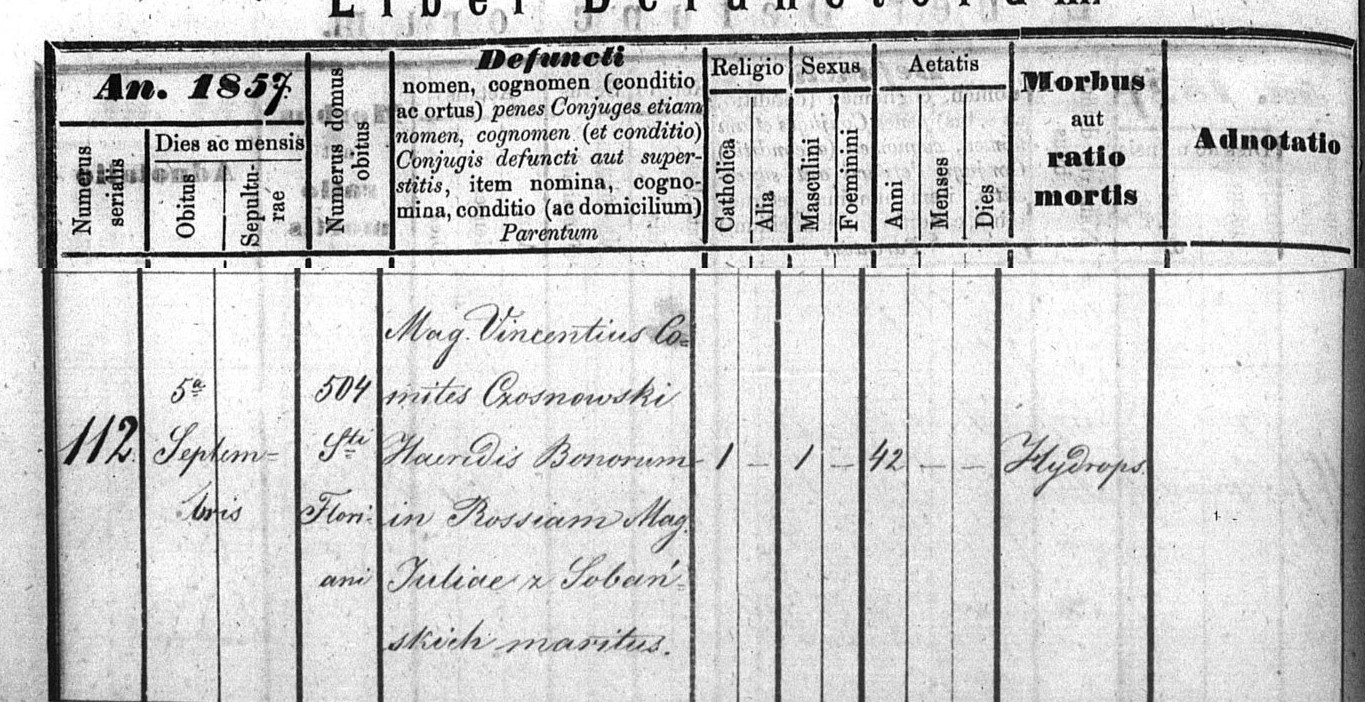 Liber Defunctorum.
An. 1857.
Numerus serialis
Dies ac mensis
Obitus
Sepulturae
Numerus domus obitus
Defuncti
nomen, cognomen (conditio
ac ortus) penes Conjuges etiam
nomen, cognomen (et conditio)
Conjugis defuncti aut super-
stitis, item nomina, cogno-
mina, conditio (ac domicilium)
Parentum
Religio
Catholica
Alia
Sexus
Masculini
Foeminini
Aetatis
Anni
Menses
Dies
Morbus
aut
ratio
mortis
Adnotatio
112.
5ª
Septem=
bris
504
Sti
Flori-
ani
Mag. Vincentius Co=
mites Czosnowski
Haeridis Bonorum
in Rossiam Mag.
Juliae z Sobań-
skich maritus.
1 – 1 – 42 – –
Hydrops.